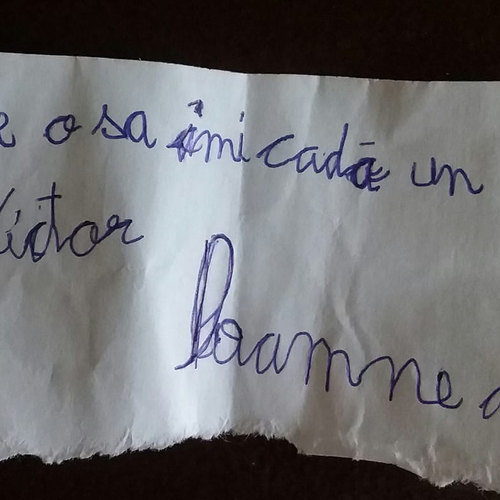 e o sa îmi cadă un
Victor
Doamne a